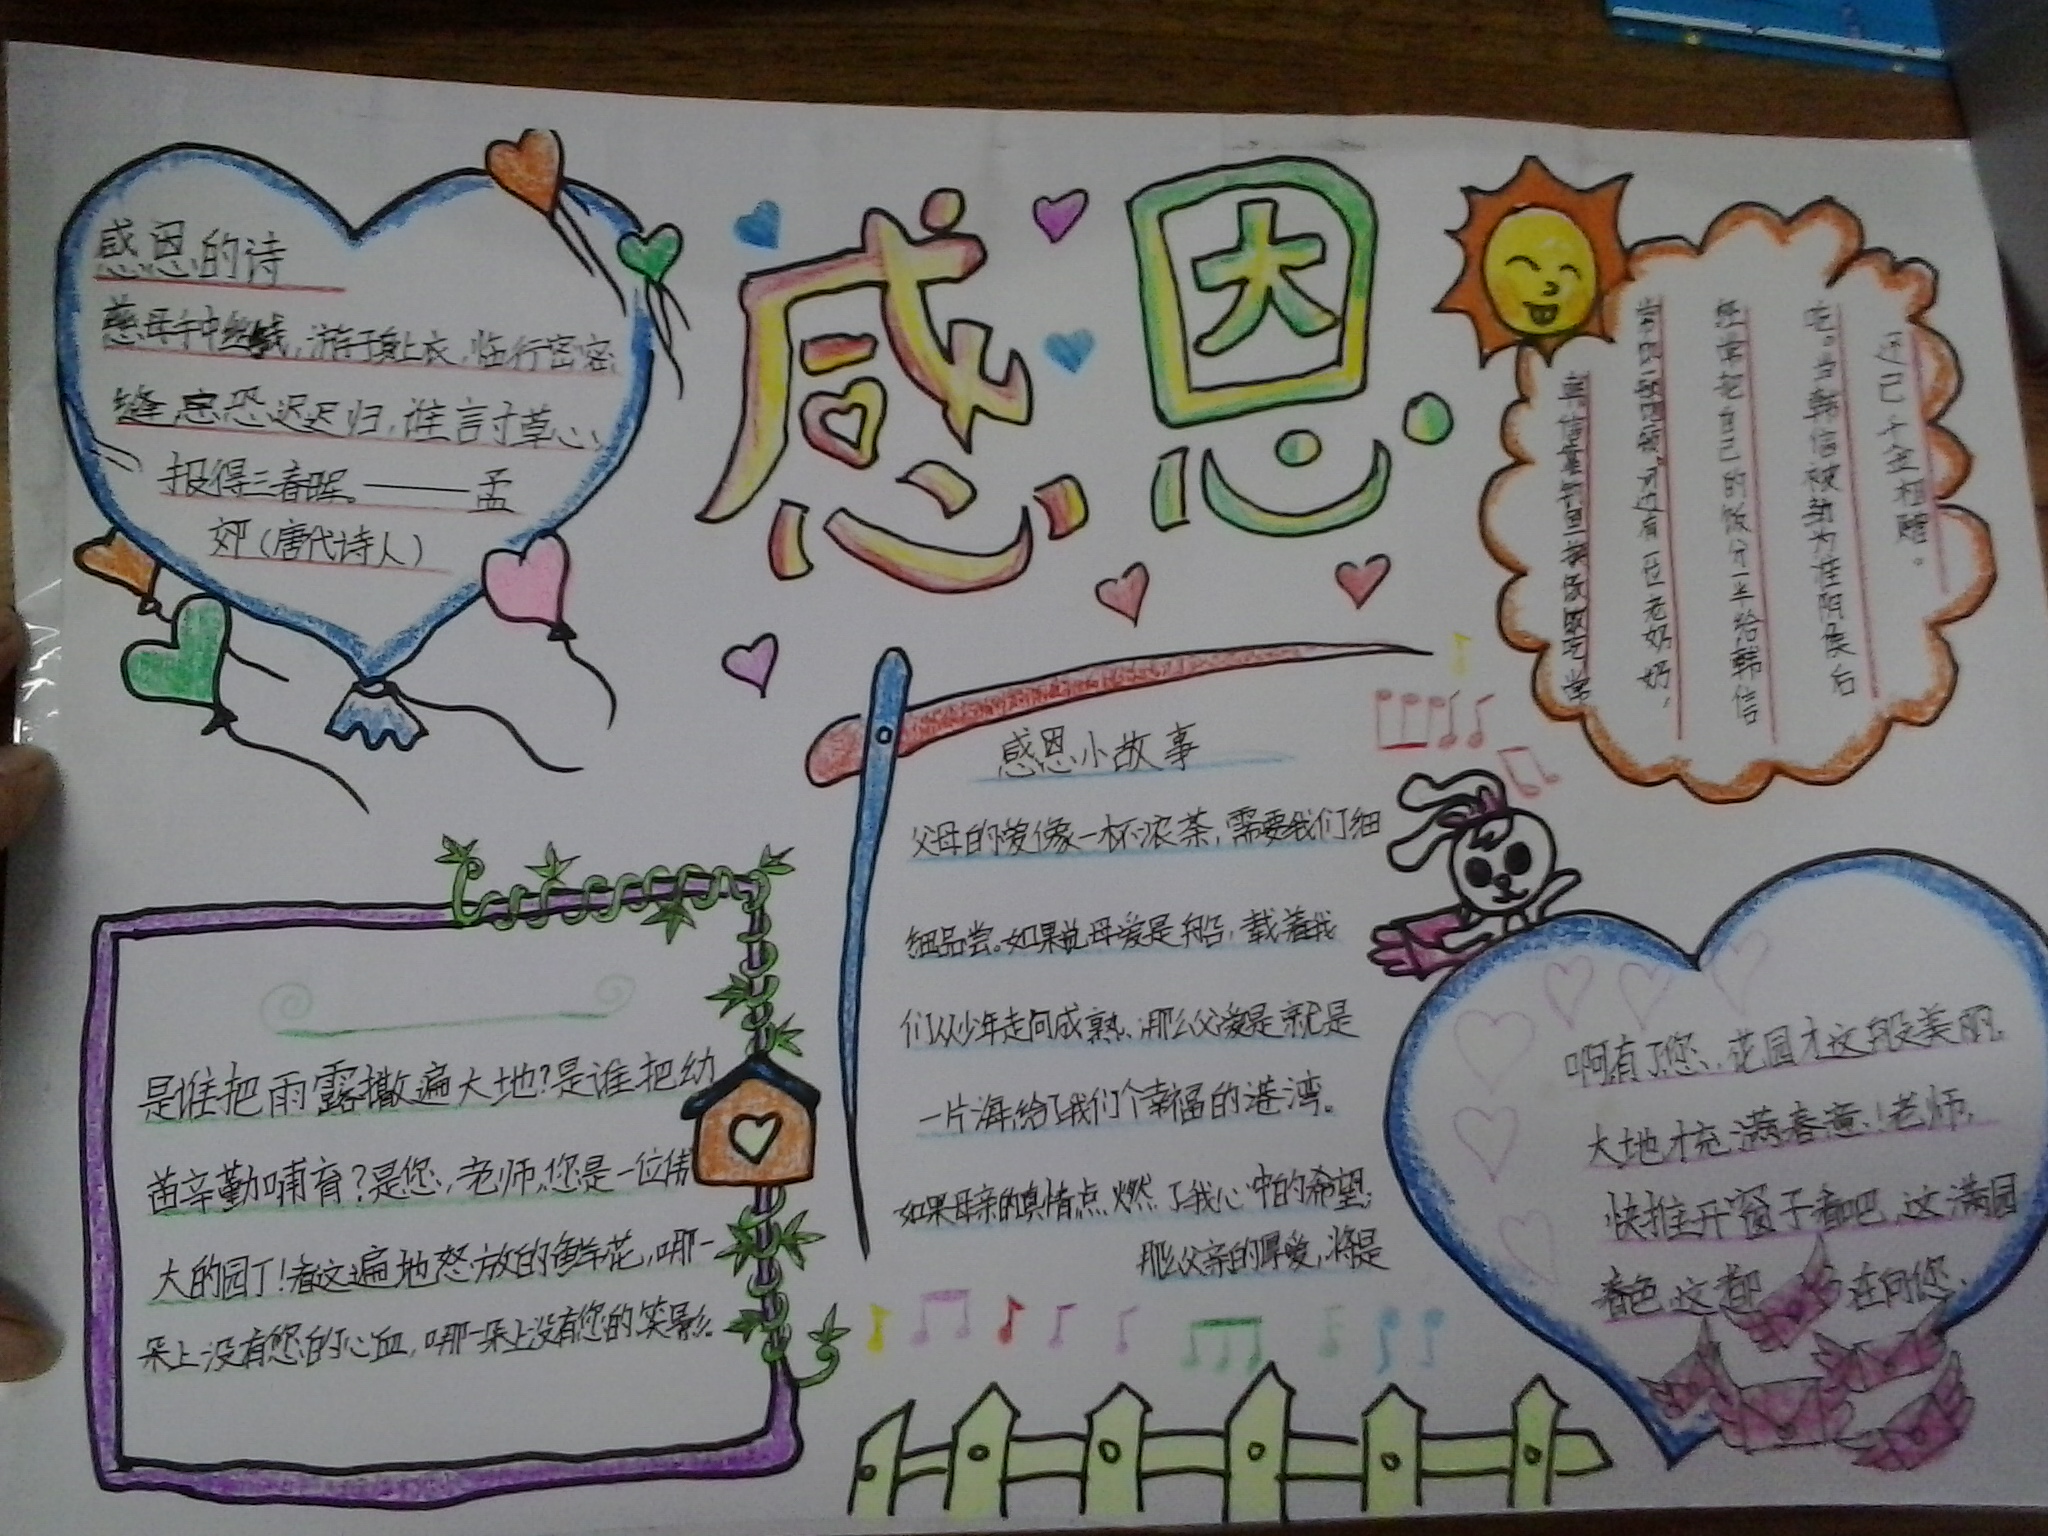 感恩
感恩的诗
慈母手中线,游子身上衣,临行密密
缝,意恐迟迟归,谁言寸草心,
报得三春晖。——孟
郊(唐代诗人)
韩信靠钓鱼换饭吃常
常只一顿河边有一位老奶奶,
经常把自己的饭分一半给韩信
吃。当韩信被封为淮阴侯后
还已千金相赠。
感恩小故事
父母的爱像一杯浓茶,需要我们细
细品尝。如果说母爱是船,载着我
们从少年走向成熟,那么父爱是就是
一片海,给了我们个幸福的港湾。
如果母亲的真情点燃了我心中的希望;
那么父亲的厚爱,将是
是谁把雨露撒遍大地?是谁把幼
苗辛勤哺育?是您,老师,您是一位伟
大的园丁!看这遍地怒放的鲜花,哪一
朵上没有您的心血,哪一朵上没有您的笑影。
啊有了您,花园才这般美丽,
大地才充满春意!老师,
快推开窗子看吧,这满园
春色,这都 在向您,